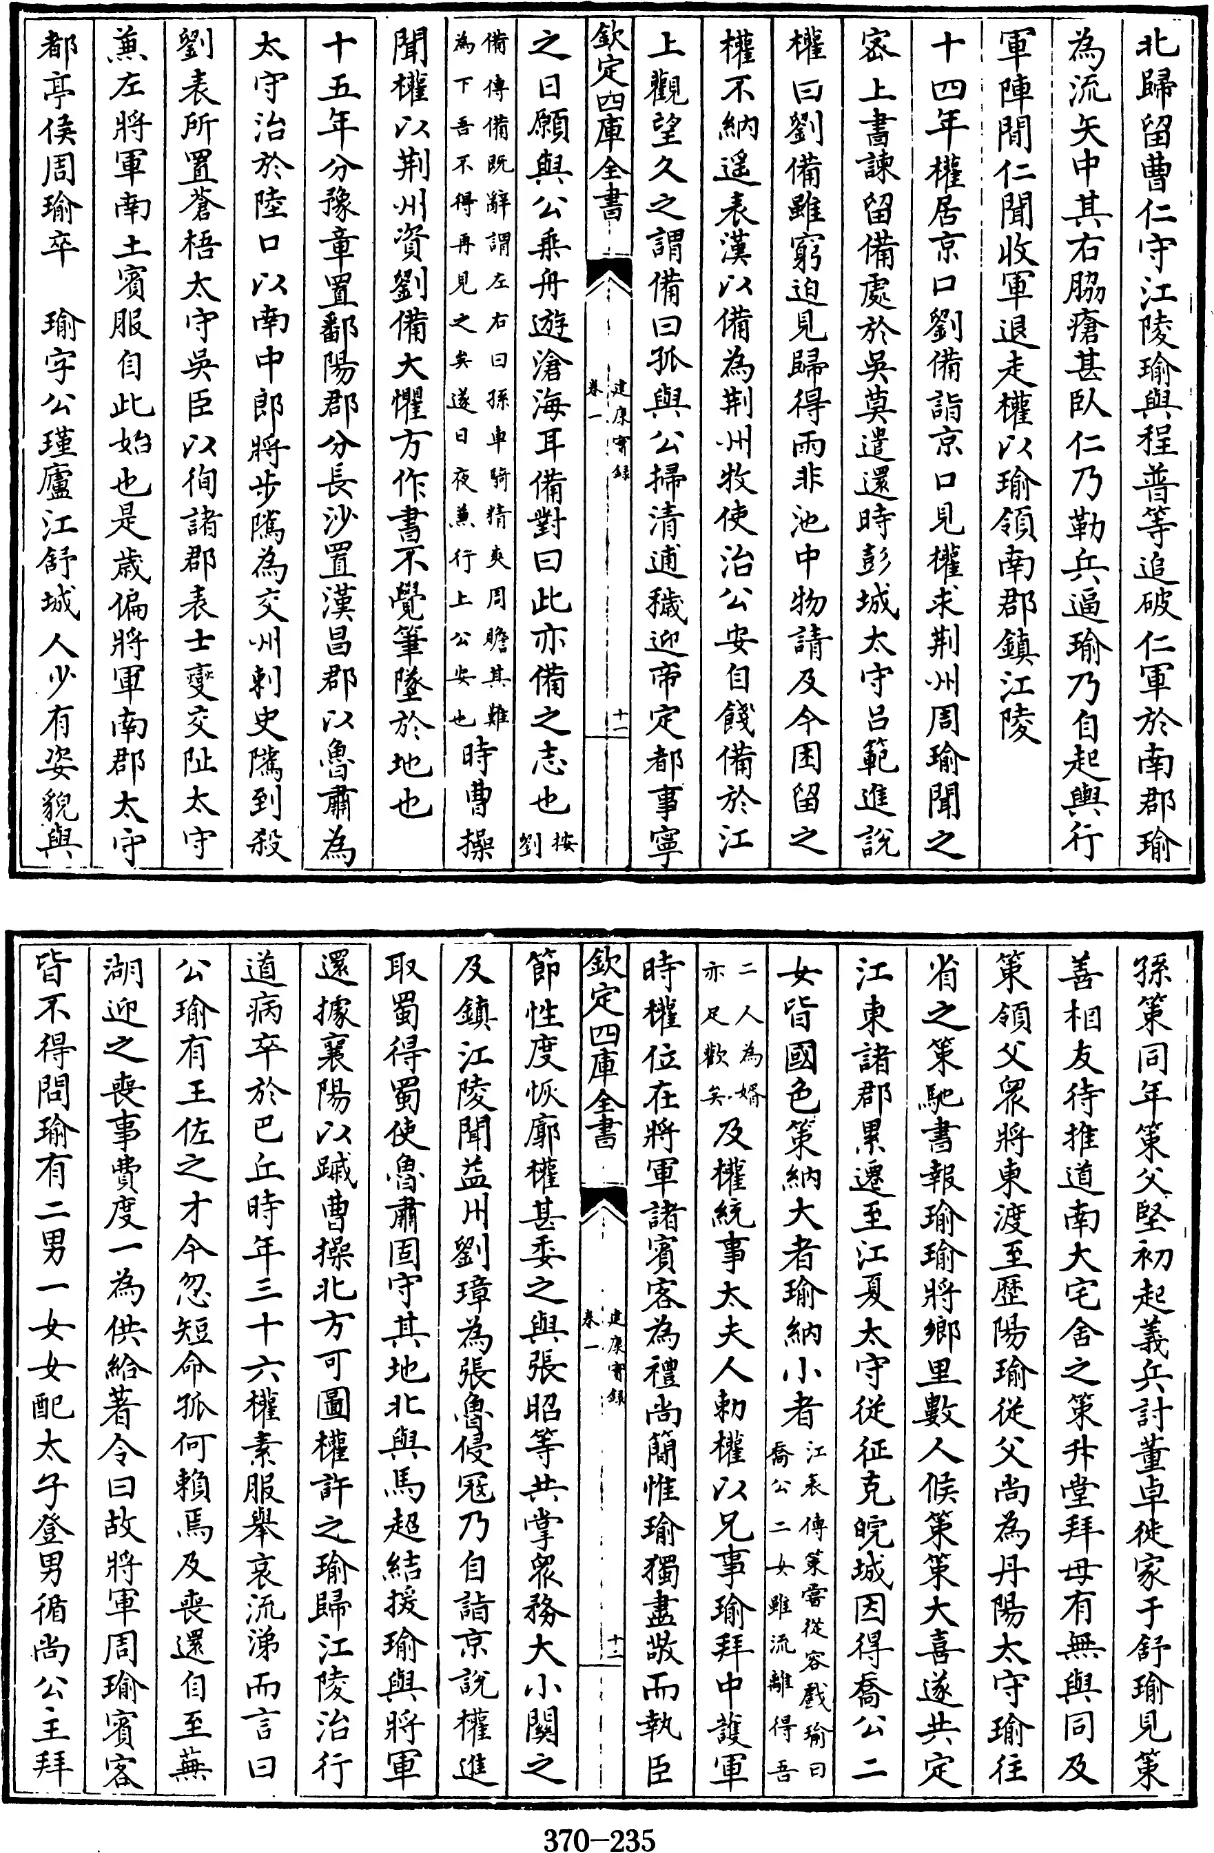 北歸留曹仁守江陵瑜與程普等追破仁軍於南郡瑜
為流矢中其右脇瘡甚臥仁乃勒兵逼瑜乃自起輿行
軍陣間仁聞收軍退走權以瑜領南郡鎮江陵
十四年權居京口劉備詣京口見權求荆州周瑜聞之
宻上書諫留備處於吳莫遣還時彭城太守吕範進說
權曰劉備雖窮迫見歸得雨非池中物請及今困留之
權不納遥表漢以備為荆州牧使治公安自餞備於江
上觀望久之謂備曰孤與公掃清逋穢迎帝定都事寧
欽定四庫全書
建康實錄
卷一
十一
之日願與公乘舟遊滄海耳備對曰此亦備之志也按
劉
備傳備既辭謂左右曰孫車騎精爽周瞻其難
為下吾不得再見之矣遂日夜兼行上公安也時曹操
聞權以荆州資劉備大懼方作書不覺筆墜於地也
十五年分豫章置鄱陽郡分長沙置漢昌郡以魯肅為
太守治於陸口以南中郎將步隲為交州刺史隲到殺
劉表所置蒼梧太守吳臣以徇諸郡表士燮交阯太守
兼左將軍南土賓服自此始也是歲偏將軍南郡太守
都亭侯周瑜卒　瑜字公瑾廬江舒城人少有姿貌與
孫策同年策父堅初起義兵討董卓徙家于舒瑜見策
善相友待推道南大宅舍之策升堂拜母有無與同及
策領父衆將東渡至歷陽瑜從父尚為丹陽太守瑜往
省之策馳書報瑜瑜將鄉里數人候策策大喜遂共定
江東諸郡累遷至江夏太守從征克皖城因得喬公二
女皆國色策納大者瑜納小者江表傳策嘗從容戲瑜曰
喬公二女雖流離得吾
二人為婿
亦足歡矣及權統事太夫人勅權以兄事瑜拜中護軍
時權位在將軍諸賓客為禮尚簡惟瑜獨盡敬而執臣
欽定四庫全書
建康實錄
卷一
十二
節性度恢廓權甚委之與張昭等共掌衆務大小關之
及鎮江陵聞益州劉璋為張魯侵冦乃自詣京說權進
取蜀得蜀使魯肅固守其地北與馬超結援瑜與將軍
還據襄陽以蹙曹操北方可圖權許之瑜歸江陵治行
道病卒於巴丘時年三十六權素服舉哀流涕而言曰
公瑜有王佐之才今忽短命孤何賴焉及喪還自至蕪
湖迎之喪事費度一為供給著令曰故將軍周瑜賓客
皆不得問瑜有二男一女女配太子登男循尚公主拜
370-235